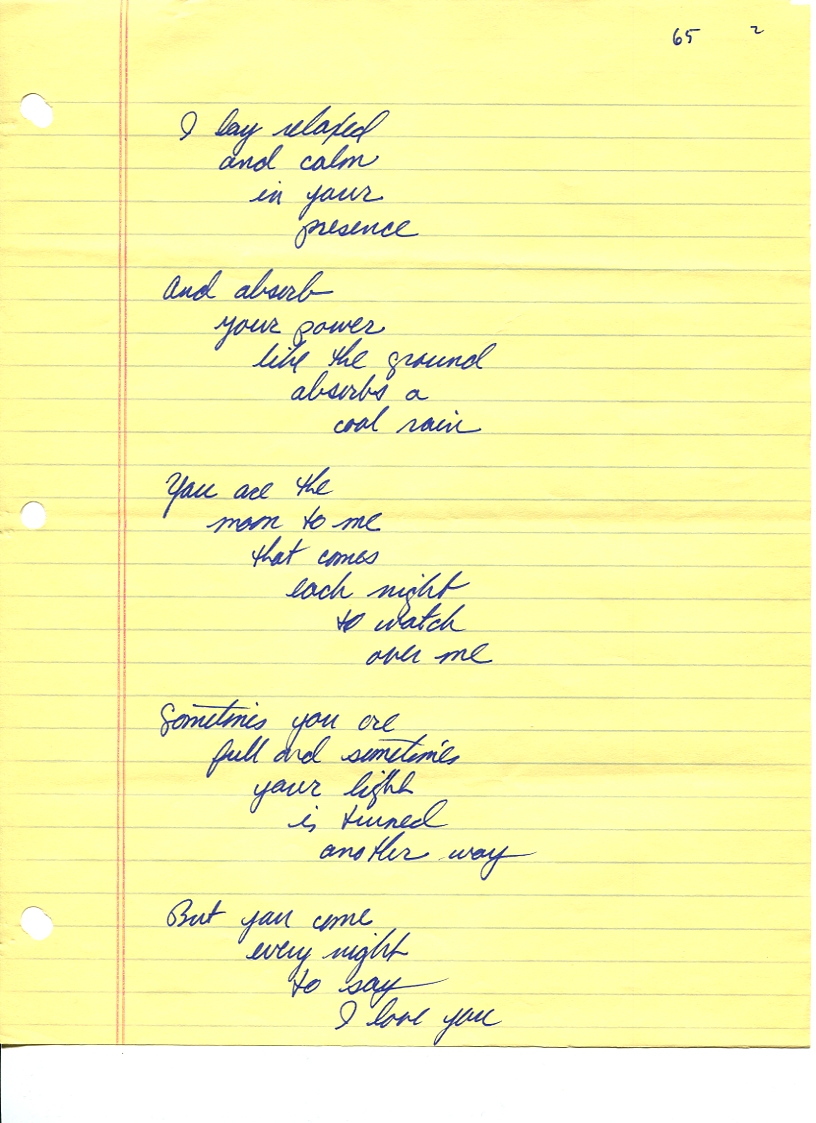 65 2
I lay relaxed
and calm
in your
presence
And absorb
your power
like the ground
absorbs a
cool rain
You are the
moon to me
that comes
each night
to watch
over me
Sometimes you are
full and sometimes
your light
is turned
another way
But you come
every night
to say
I love you